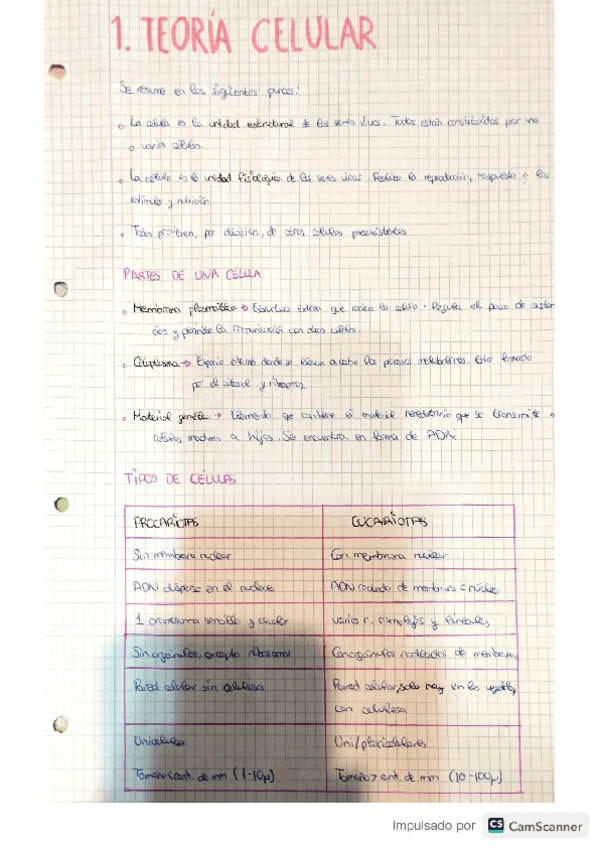 1. TEORÍA CELULAR
Se resume en los siguientes puntos:
La célula es la unidad estructural de los seres vivos. Todos están constituidos por una
o varias células.
La célula es la unidad fisiológica de los seres vivos. Realiza la reproducción, respuesta a los
estímulos y nutrición.
Todas provienen, por división, de otras células preexistentes
PARTES DE UNA CÉLULA
Membrana plasmática → Estructura externa que rodea la célula. Regula el paso de sustan
cias y permite la comunicación con otras células.
Citoplasma → Espacio interno donde se llevan a cabo los procesos metabólicos. Está formado
por el citosol y ribosomas.
Material genético → que contiene el material hereditario que se transmite
madres a hijas. Se encuentra en forma de ADN.
TIPOS DE CÉLULAS
PROCARIOTAS EUCARIOTAS
Sin membrana nuclear Con membrana nuclear
ADN disperso en el ADN rodeado de membrana = núcleo
1 cromosoma sencillo y circular varios c. complejos y lineales
Sin orgánulos, excepto ribosomas Con orgánulos rodeados de membrana
Pared celular sin celulosa Pared celular, solo hay en los vegetales,
con celulosa
Unicelular Uni/pluricelulares
Tamaño < cent. de mm (1-10µ) Tamaño > cent. de mm (10-100µ)
Impulsado por CS CamScanner